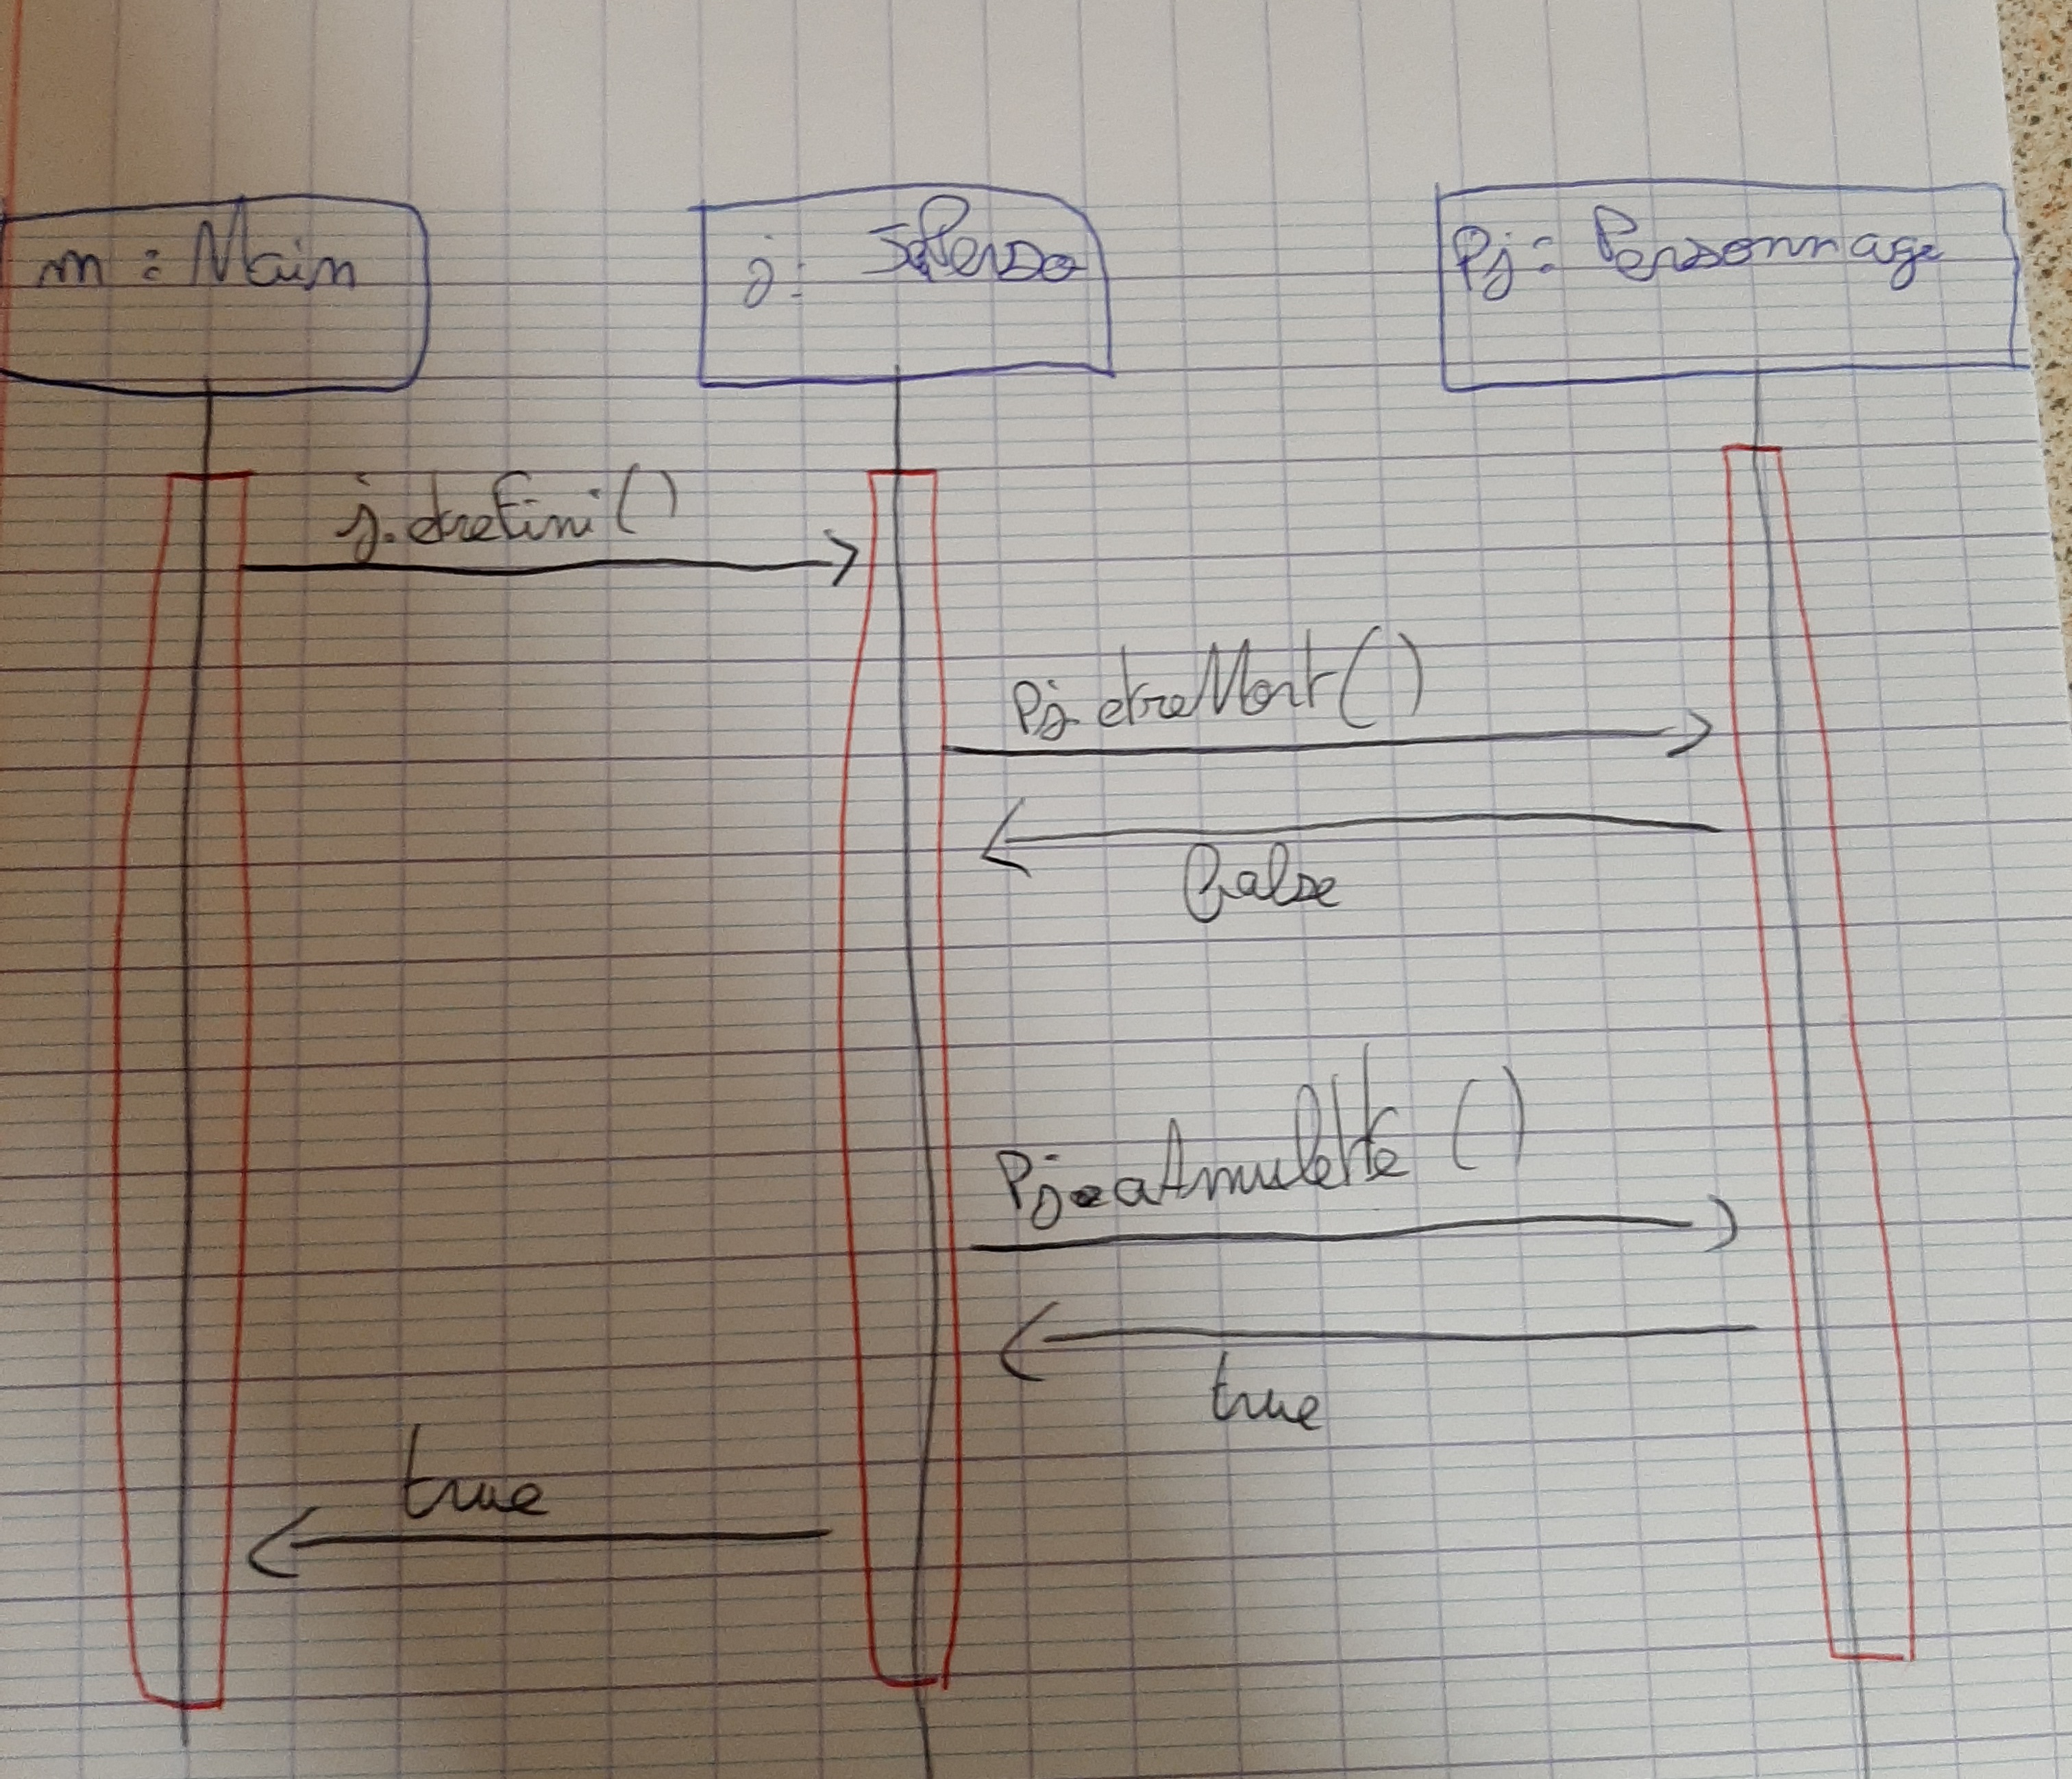 m : Main
j :
Pj : Personnage
j.etreFini()
Pj.etreMort()
false
Pj.aAmulette ()
true
true